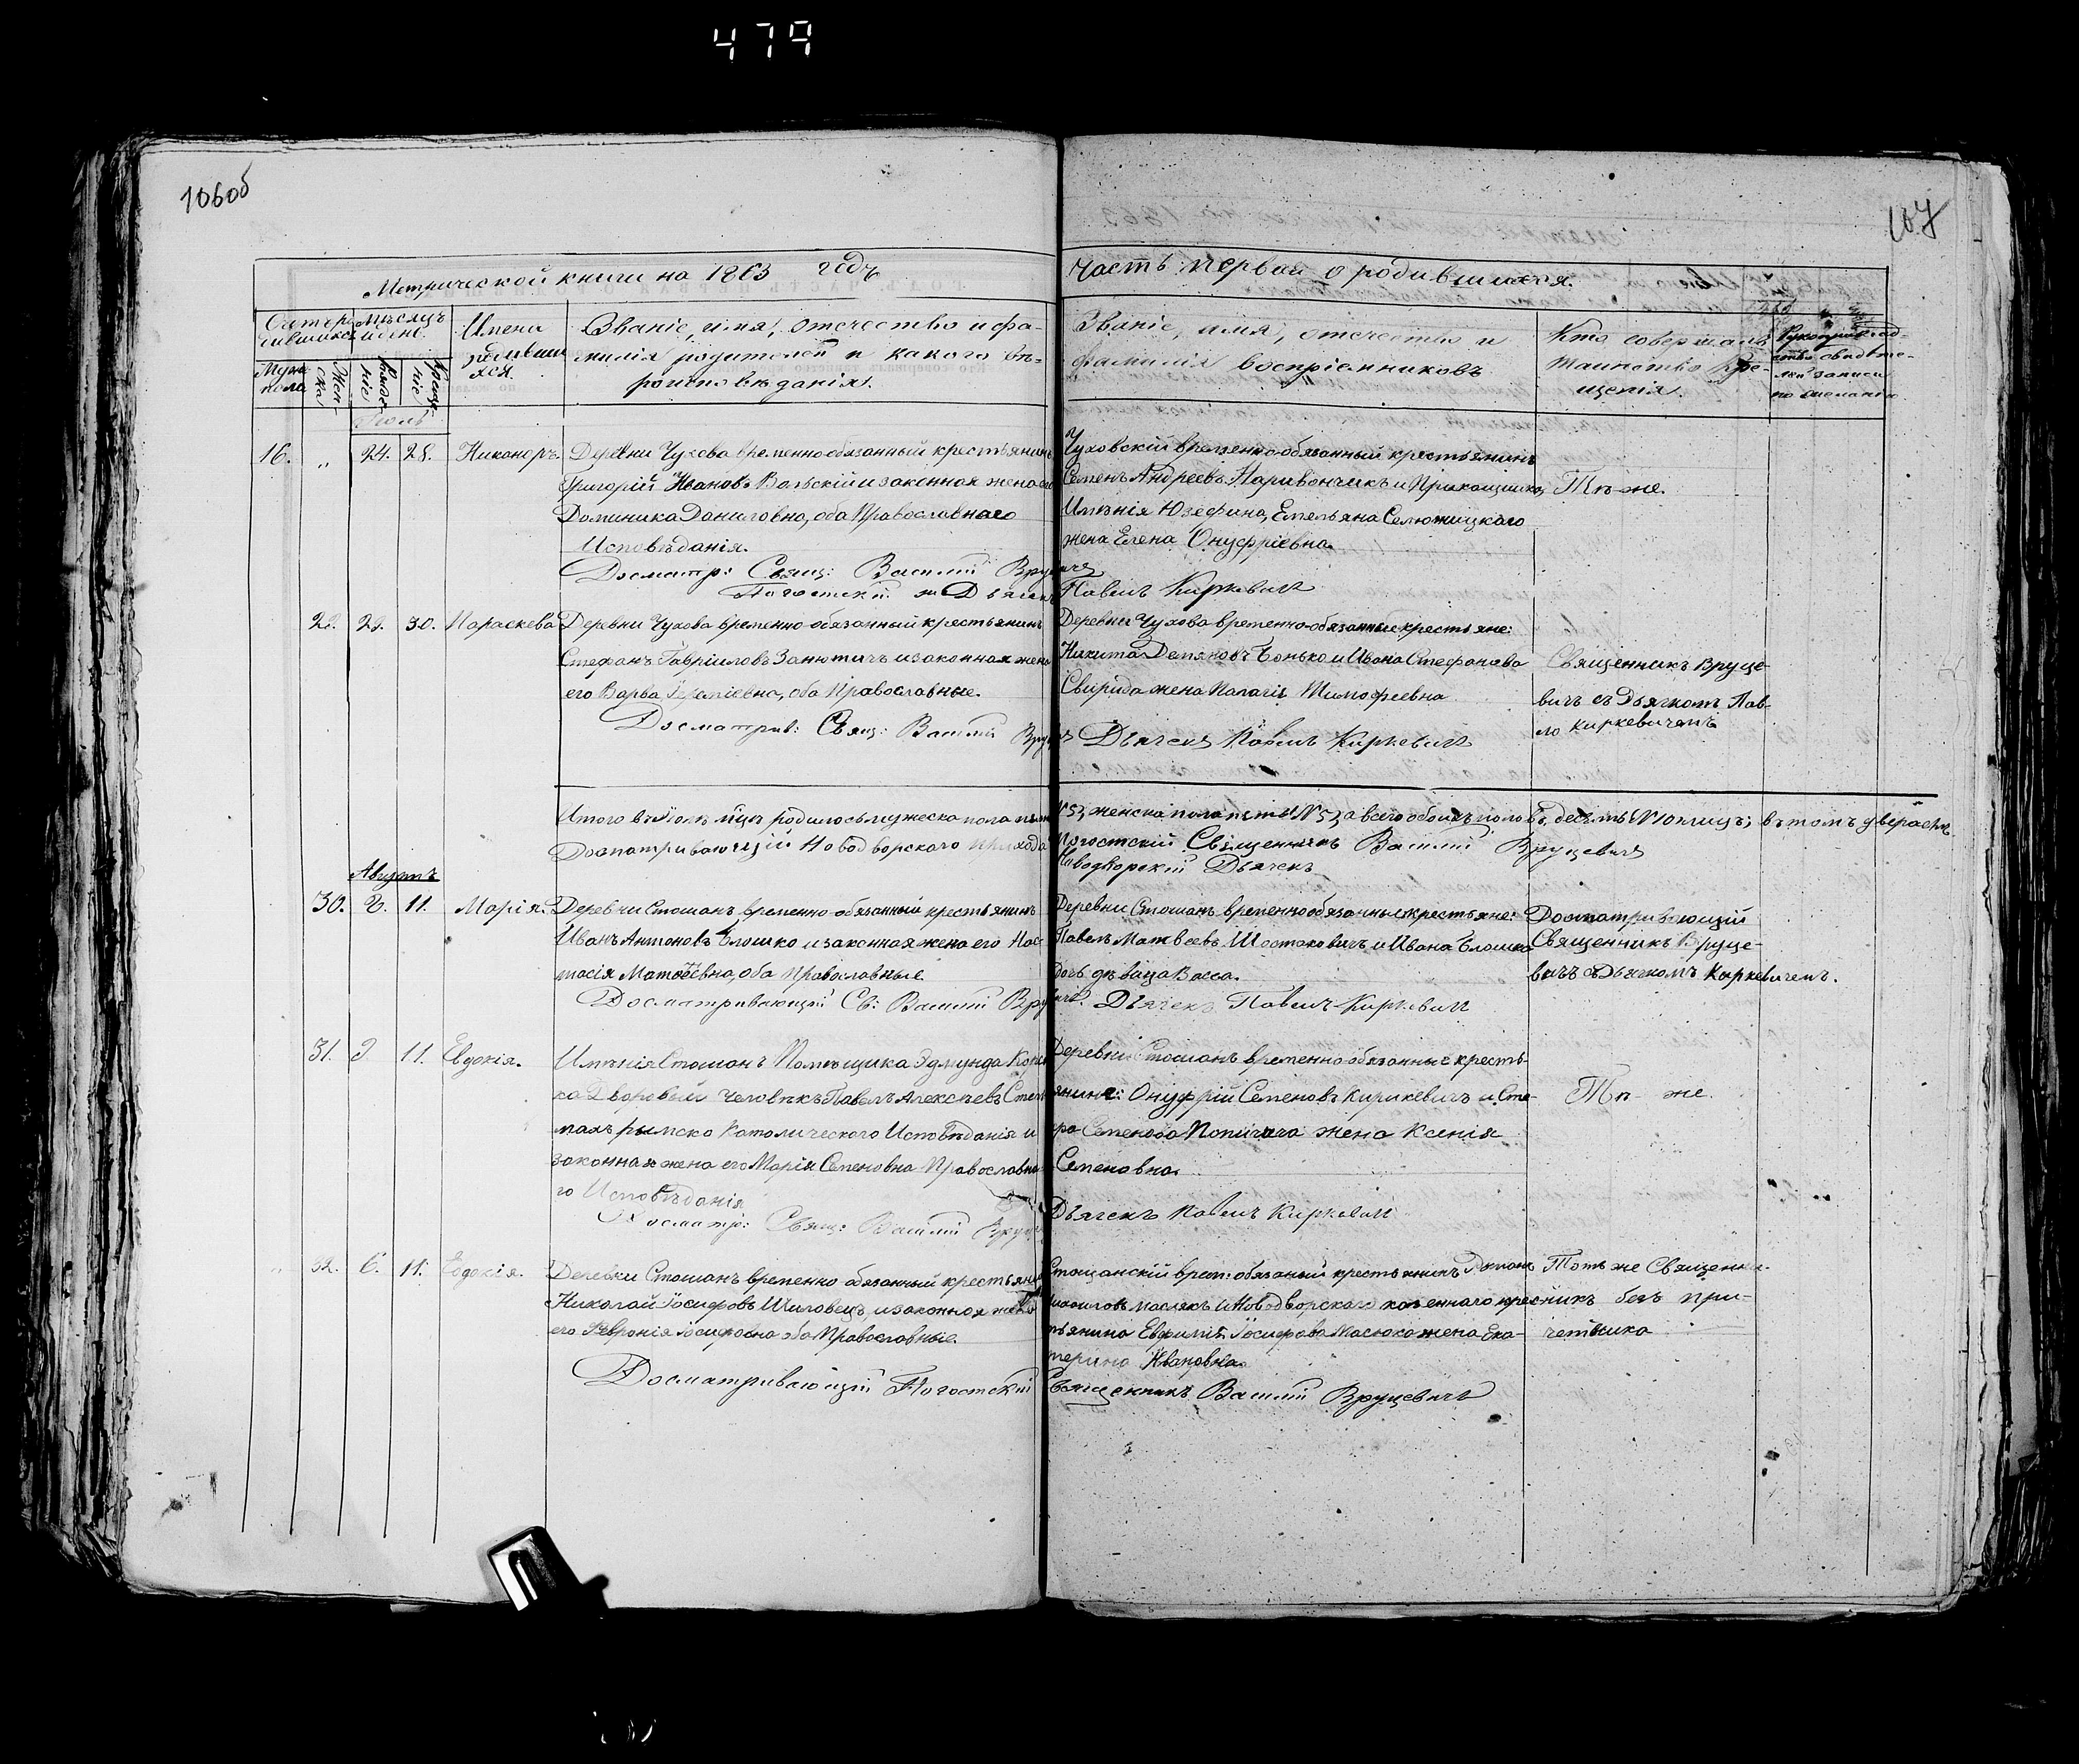 479
106об
107
Метрической книги на 1863 годъ
часть первая о родившихся.
Мѣсяцъ
Имена
родивши
яся.
Званіе, имя, отечество и фа-
милія родителей и какого вѣ-
роисповѣданія.
Званіе, имя, отечество и
фамилія воспріемниковъ
Кто совершалъ
таинство Кре-
щенія.
Рукоприклад-
ство свидѣте-
лей записи
по желанію
Муж.
пола
Жен-
ска
Рожде
ніе
Креще-
ніе
Іюль
16. „ 24. 28. Никаноръ.
Деревни Чухова временно-обязанный крестьянинъ
Григорій Ивановъ Вольскій и законная жена его
Доминика Даниловна, оба Православнаго
Исповѣданія.
Досматр: Свящ: Василій
Погостскій
Чуховскій временно-обязанный крестьянинъ
Семенъ Андреевъ и
Имѣнія Юзефина, Емельяна
жена Елена Онуфріевна.
Павелъ Киркевичъ
Тѣ-же.
29. 30. Параскева
Деревни Чухова временно-обязанный крестьянинъ
Стефанъ Гавріиловъ и законная жена
его Варва оба Православные.
Досматрив: Свящ: Василій
Деревни Чухова временно-обязанные крестьяне:
Никита Демяновъ Бонько и Ивана Стефанова
Свирида жена Палагія Тимофеевна
Дьячекъ Павелъ Киркевичъ
Священникъ Вруце-
вичъ съ Дьячкомъ Пав-
ло Киркевичемъ
Итого въ Іюлѣ м̃цѣ родилось мужеска пола
№ 5, женска пола пять № 5, а всего обоихъ половъ десять
Досматривающій Новодворскаго прихода
Погостскій Священникъ Василій Вруцевичъ
Новодворскій Дьячекъ
Августъ
30. 2. 11. Марія.
Деревни Стошанъ временно-обязанный крестьянинъ
Иванъ Антоновъ Блошко и законная жена его Нас-
тасія Матвѣевна, оба православные
Досматривающій Св: Василій
Деревни Стошанъ временнообязанные крестьяне:
Павелъ Матвеевъ Шостаковичъ и Ивана Блошка
дочь дѣвица Васса.
Дьячекъ Павелъ Киркевичъ
Досматривающій
Священникъ Вруце-
вичъ съ Дьячкомъ Киркевичемъ.
31. 11. Евдокія.
Имѣнія Стошанъ Помѣщика Эдмунда
Дворовый человѣкъ Павелъ Алексѣевъ
римско Католическаго Исповѣданія и
законная жена его Марія Семеновна Православна-
го Исповѣданія
Досматр: Свящ: Василій
Деревни Стошанъ временно-обязанные кресть-
янине: Онуфрій Семеновъ Кирикевичъ и
Семенова жена Ксенія
Семеновна.
Дьячекъ Павелъ Киркевичъ
Тѣ- же.
32. 6. 11. Евдокія.
Деревни Стошанъ временно-обязанный крестьянинъ
Николай Іосифовъ Шиловецъ, и законная жена
его Февронія Іосифовна оба Православные.
Досматривающій Погостскій
Стошанскій врем: обязаный крестьянинъ
и Новодворскаго казеннаго крес-
тьянина Евфимія Іосифова Масюка жена Ека-
терина Ивановна.
Священникъ Василій Вруцевичъ
Тотъ же Священ-
никъ безъ при-
четника